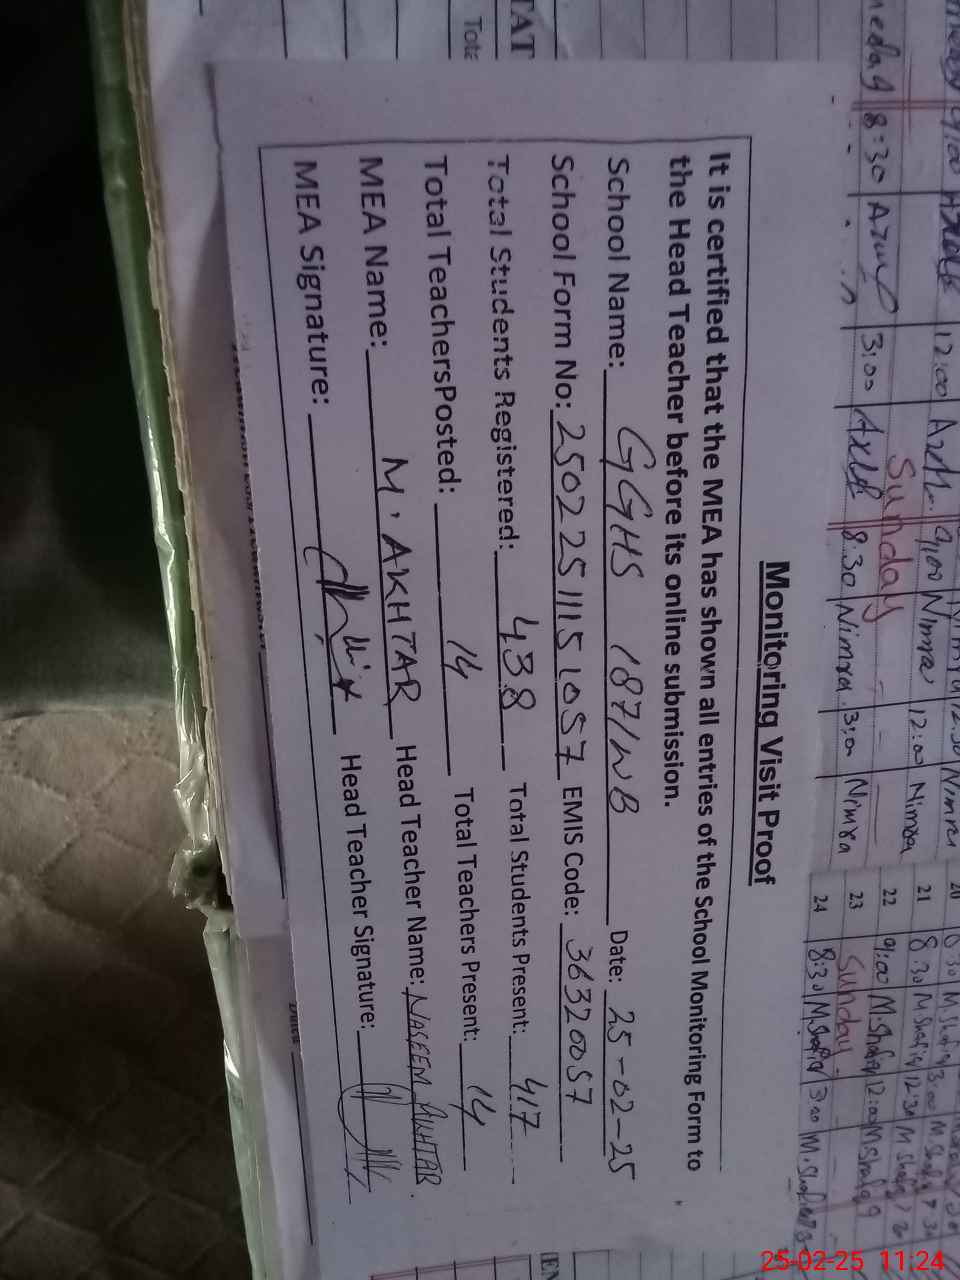 Monitoring Visit Proof
It is certified that the MEA has shown all entries of the School Monitoring Form to
the Head Teacher before its online submission.
School Name: GGHS 187/WB Date: 25-02-25
School Form No: 25022511151057 EMIS Code: 36320057
Total Students Registered: 438 Total Students Present: 417
Total TeachersPosted: 14 Total Teachers Present: 14
MEA Name: M. AKHTAR Head Teacher Name: NASEEM AKHTAR.
MEA Signature: Head Teacher Signature:
TAT
Sunday
8:30 3:00 8:30 Nimra 3:00 Nimra
12:00 9:00 Nimra 12:00 Nimra
20
21 8:30 M.Shafiq 3:00
22 9:00 M.Shafiq 12:00 M.Shafiq
23 Sunday
24 8:30 M.Shafiq 3:00 M.Shafiq
25-02-25 11:24